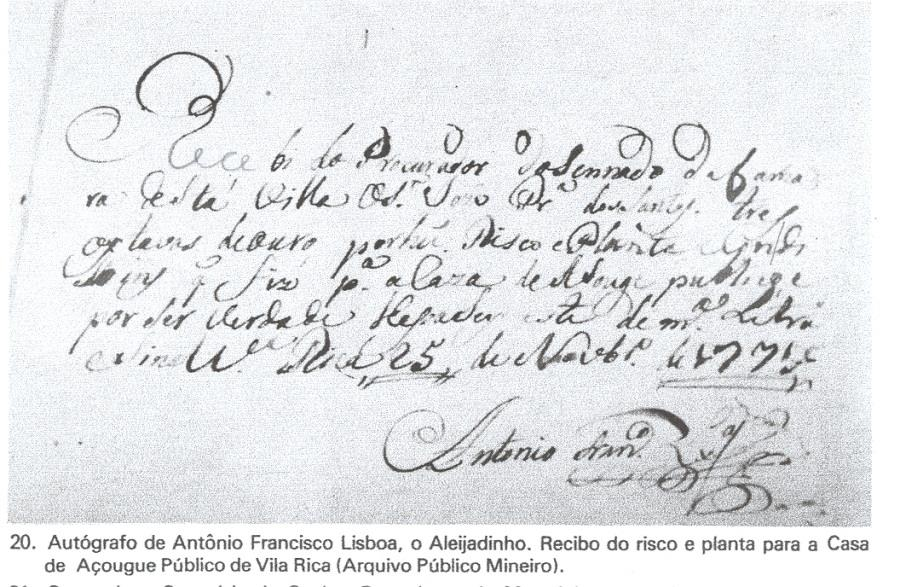 Recebi do Procurador do Sennado da Cama
ra desta Villa o S.r João Pr.a dos Santos tres
oytavas de ouro por hũ Risco e Planta
q̃ fiz p.a a Caza de Asouge publico e
por ser verdade lhe pasei este de m.a Letra
e sinal V.a Rica 25 de Novbr.o de 1771
Antonio Fran.co
20. Autógrafo de Antônio Francisco Lisboa, o Aleijadinho. Recibo do risco e planta para a Casa
de Açougue Público de Vila Rica (Arquivo Público Mineiro).